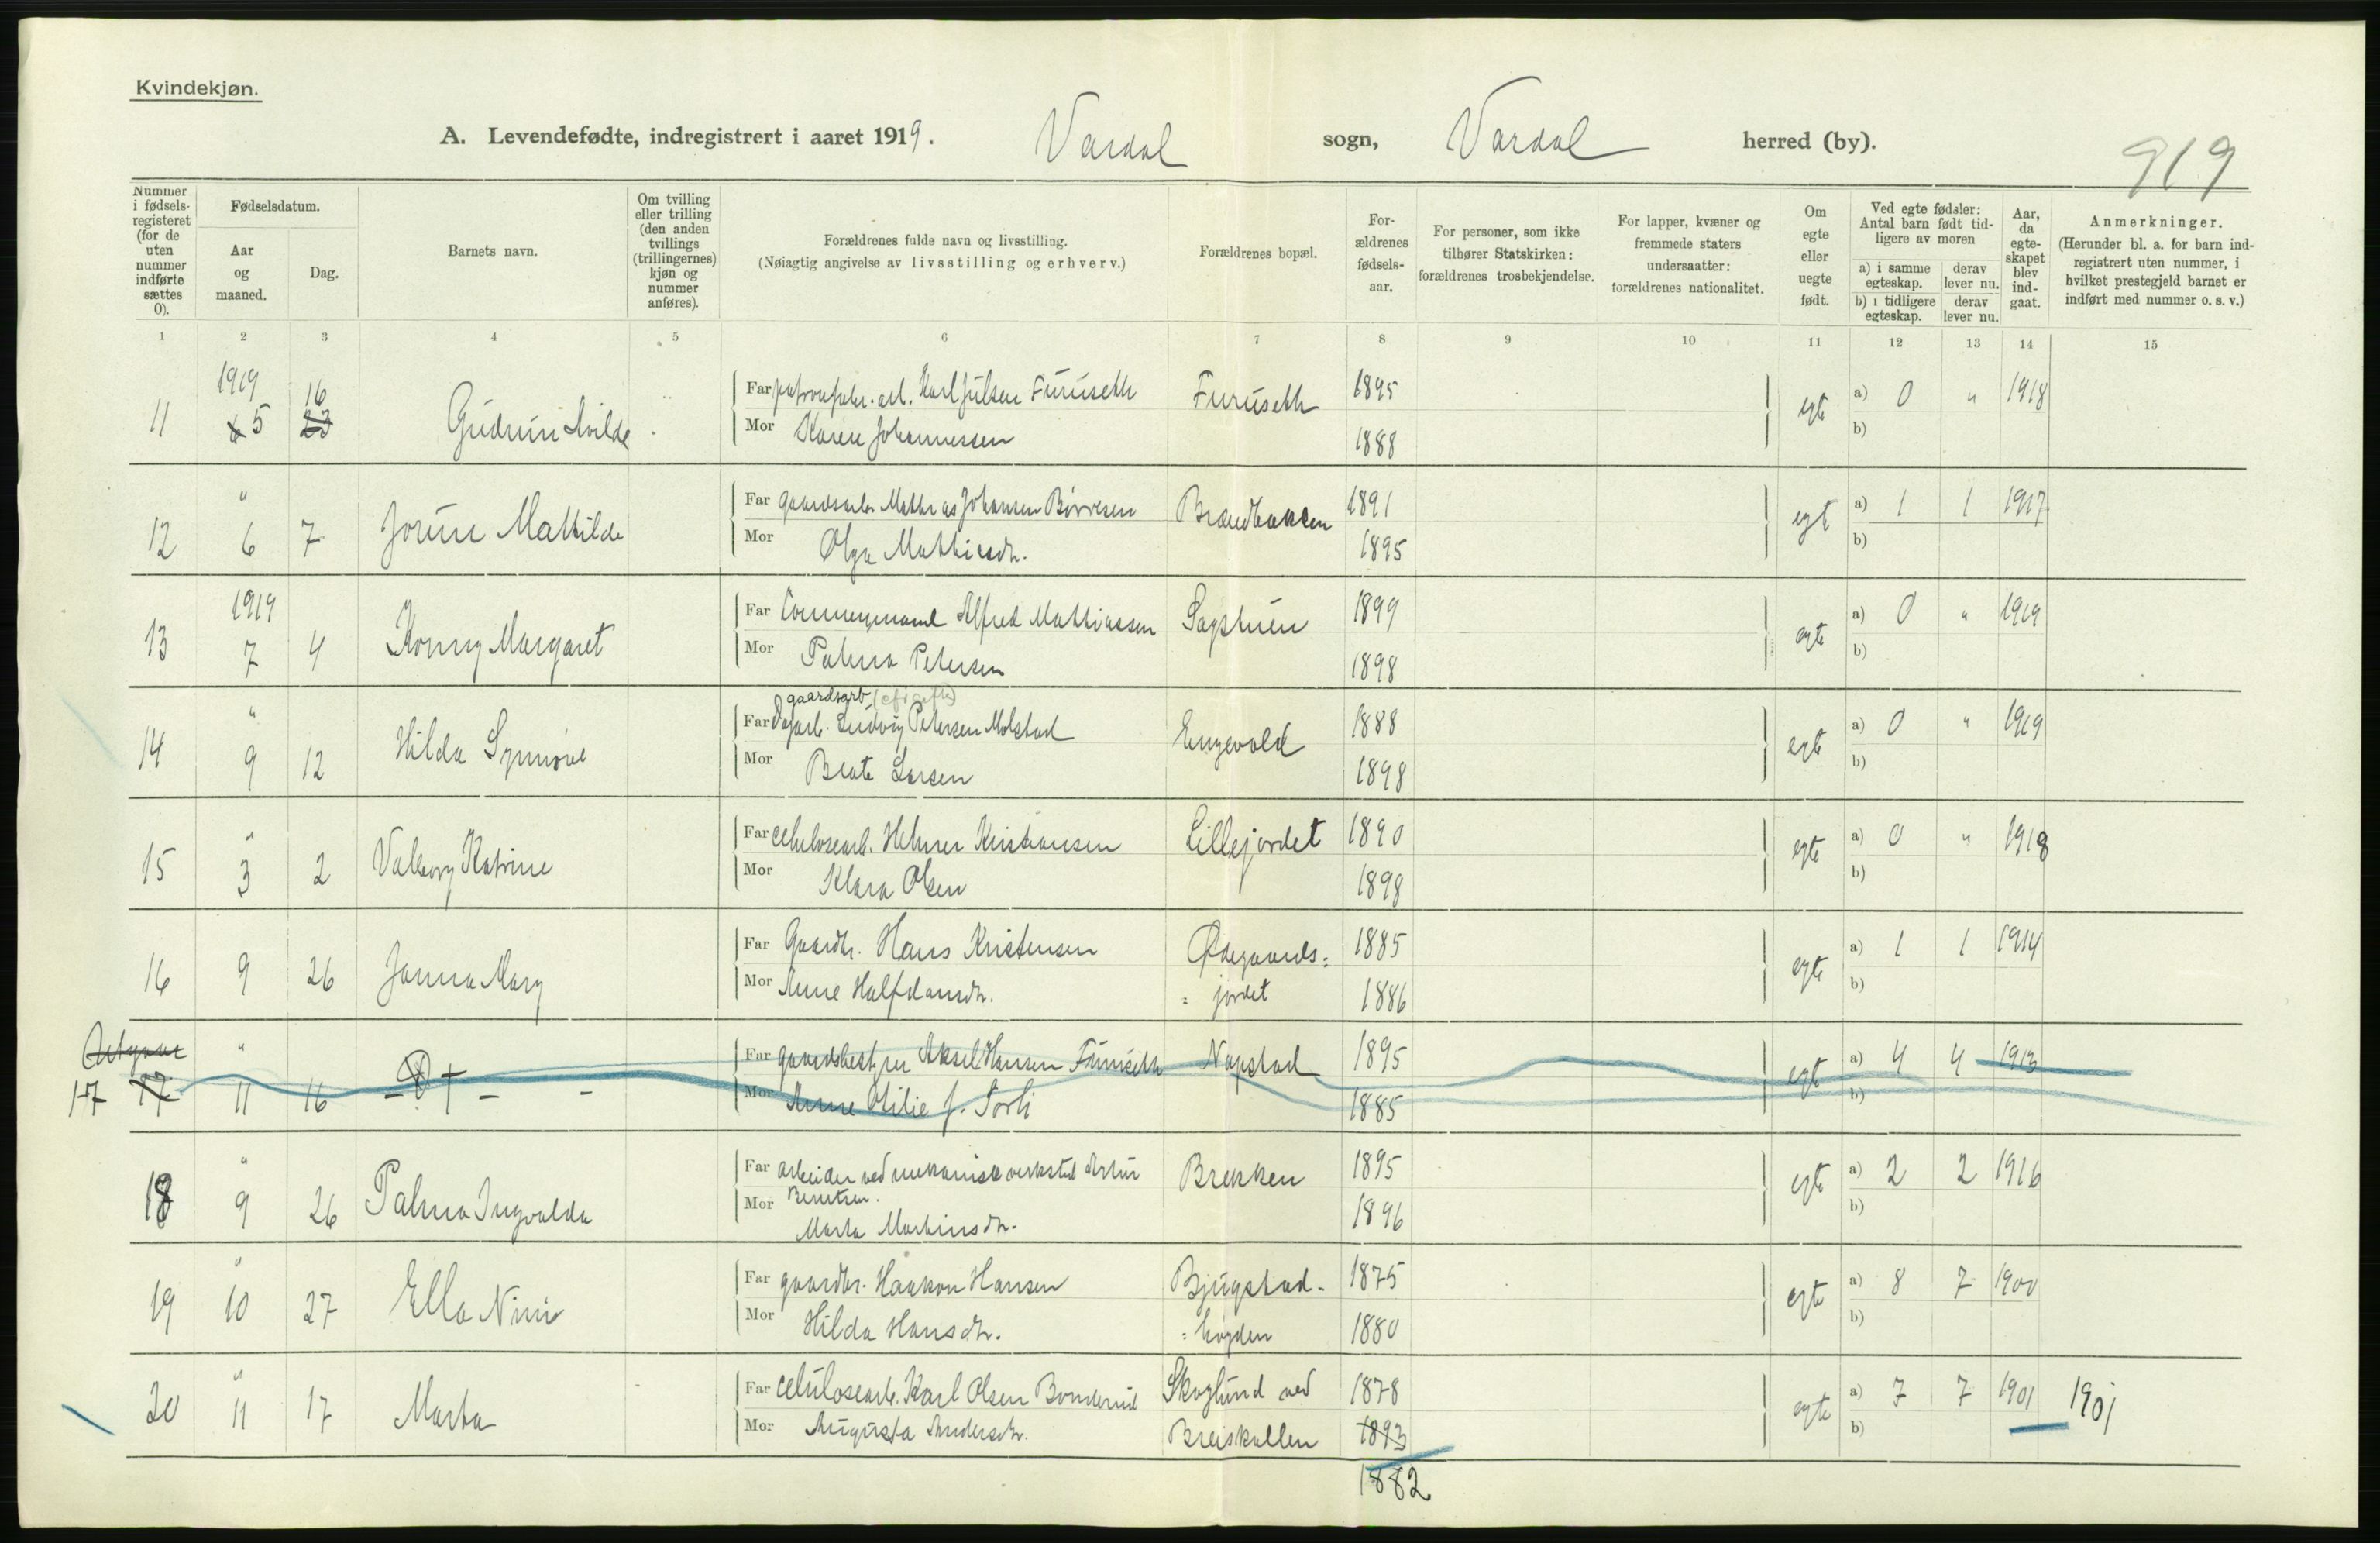 Kvindekjøn.
A. Levendefødte, indregistrert i aaret 1919. Vardal sogn, Vardal herred (by).
919
Nummer i fødsels-registeret (for de uten nummer indførte sættes 0).
Fødselsdatum.
Aar og maaned.
Dag.
Barnets navn.
Om tvilling eller trilling (den anden tvillings (trillingernes) kjøn og nummer anføres).
Forældrenes fulde navn og livsstilling.
(Nøiagtig angivelse av livsstilling og erhverv.)
Forældrenes bopæl.
For-ældrenes fødsels-aar.
For personer, som ikke tilhører Statskirken: forældrenes trosbekjendelse.
For lapper, kvæner og fremmede staters undersaatter: forældrenes nationalitet.
Om egte eller uegte født.
Ved egte fødsler: Antal barn født tid-ligere av moren
a) i samme egteskap. derav lever nu.
b) i tidligere egteskap. derav lever nu.
Aar, da egte-skapet blev ind-gaat.
Anmerkninger.
(Herunder bl. a. for barn ind-registrert uten nummer, i hvilket prestegjeld barnet er indført med nummer o. s. v.)
1 2 3 4 5 6 7 8 9 10 11 12 13 14 15
1919 16
11 6 5 23 Gudrun Alvilde
Far Karl Julsen Furuseth Furuseth 1895 egte a) 0 " 1918
Mor Karen Johannessen 1888 b)
"
12 6 7 Jorun Mathilde
Far gaardsarb. Mathias Johansen Børresen Brændbakken 1891 egte a) 1 1 1917
Mor Olga Mathisdtr. 1895 b)
1919
13 7 4 Konny Margaret
Far Alfred Mathiassen Sagstuen 1899 egte a) 0 " 1919
Mor Palma Petersen 1898 b)
gaardsarb.
"
14 9 12 Hilda Synnøve
Far Ludvig Petersen Molstad Engevold 1888 egte a) 0 " 1919
Mor Beate Larsen 1898 b)
"
15 3 2 Valborg Katrine
Far celulosearb. Helmer Kristiansen Lillejordet 1890 egte a) 0 " 1918
Mor Klara Olsen 1898 b)
16 9 26 Janna Mary
Far Gaardbr. Hans Kristensen Ødegaards= 1885 egte a) 1 1 1914
Mor Anne Halfdansdtr. =jordet 1886 b)
Utgaar "
17 17 11 16 - D † - -
Far gaardsbestyrer Aksel Hansen Furuseth Nøpstad 1895 egte a) 4 4 1913
Mor Anne Otilie f. Torli 1885 b)
"
18 9 26 Palma Ingvalda
Far arbeider ved mekanisk verksted Artur Brekken 1895 egte a) 2 2 1916
Mor Berntsen.
Marta Martinsdtr. 1896 b)
"
19 10 27 Ella Nini
Far gaardbr. Haakon Hansen Bjugstad- 1875 egte a) 8 7 1900
Mor Hilda Hansdtr. =hogden 1880 b)
"
20 11 17 Marta
Far celulosearb. Karl Olsen Bonderud Skoglund ved 1878 egte a) 7 7 1901 1901
Mor Augusta Andersdtr. Breiskallen 1893 b)
1882